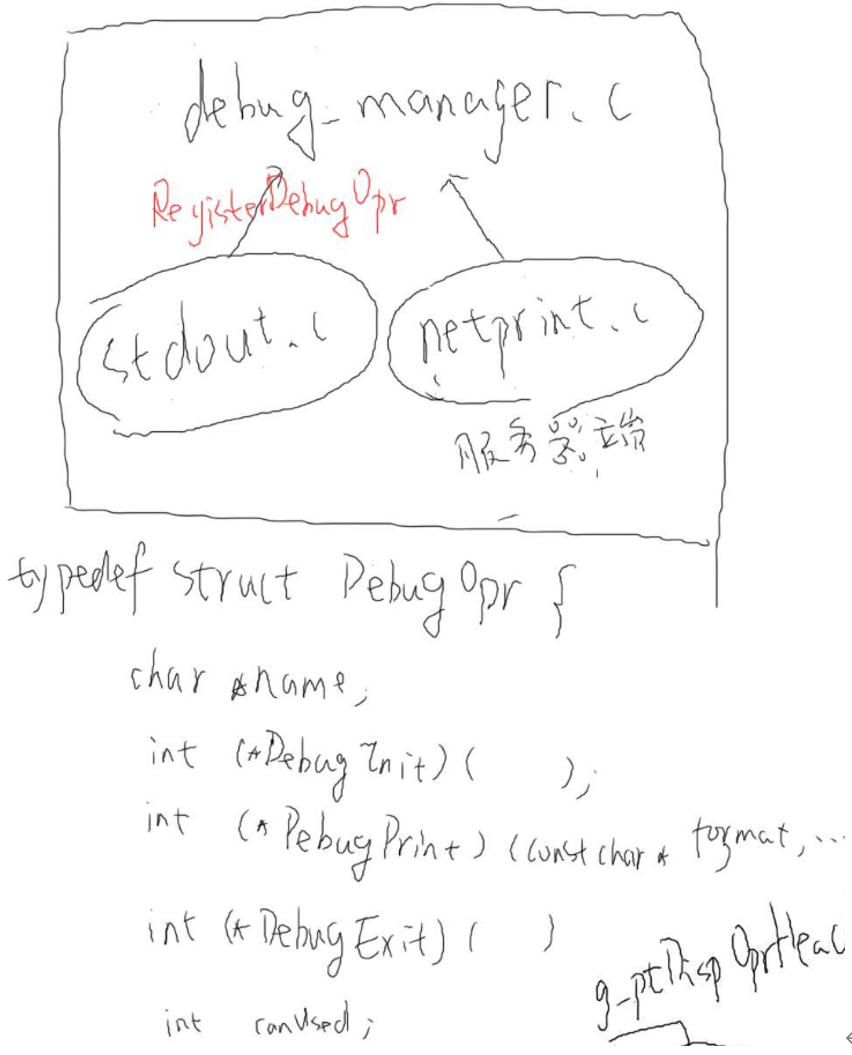 debug_manager.c
RegisterDebugOpr
stdout.c
netprint.c
服务器端
typedef struct DebugOpr {
char *name;
int (*DebugInit)( );
int (*DebugPrint)(const char* format, ...
int (*DebugExit)( )
g_ptDispOprHea
int canUsed;